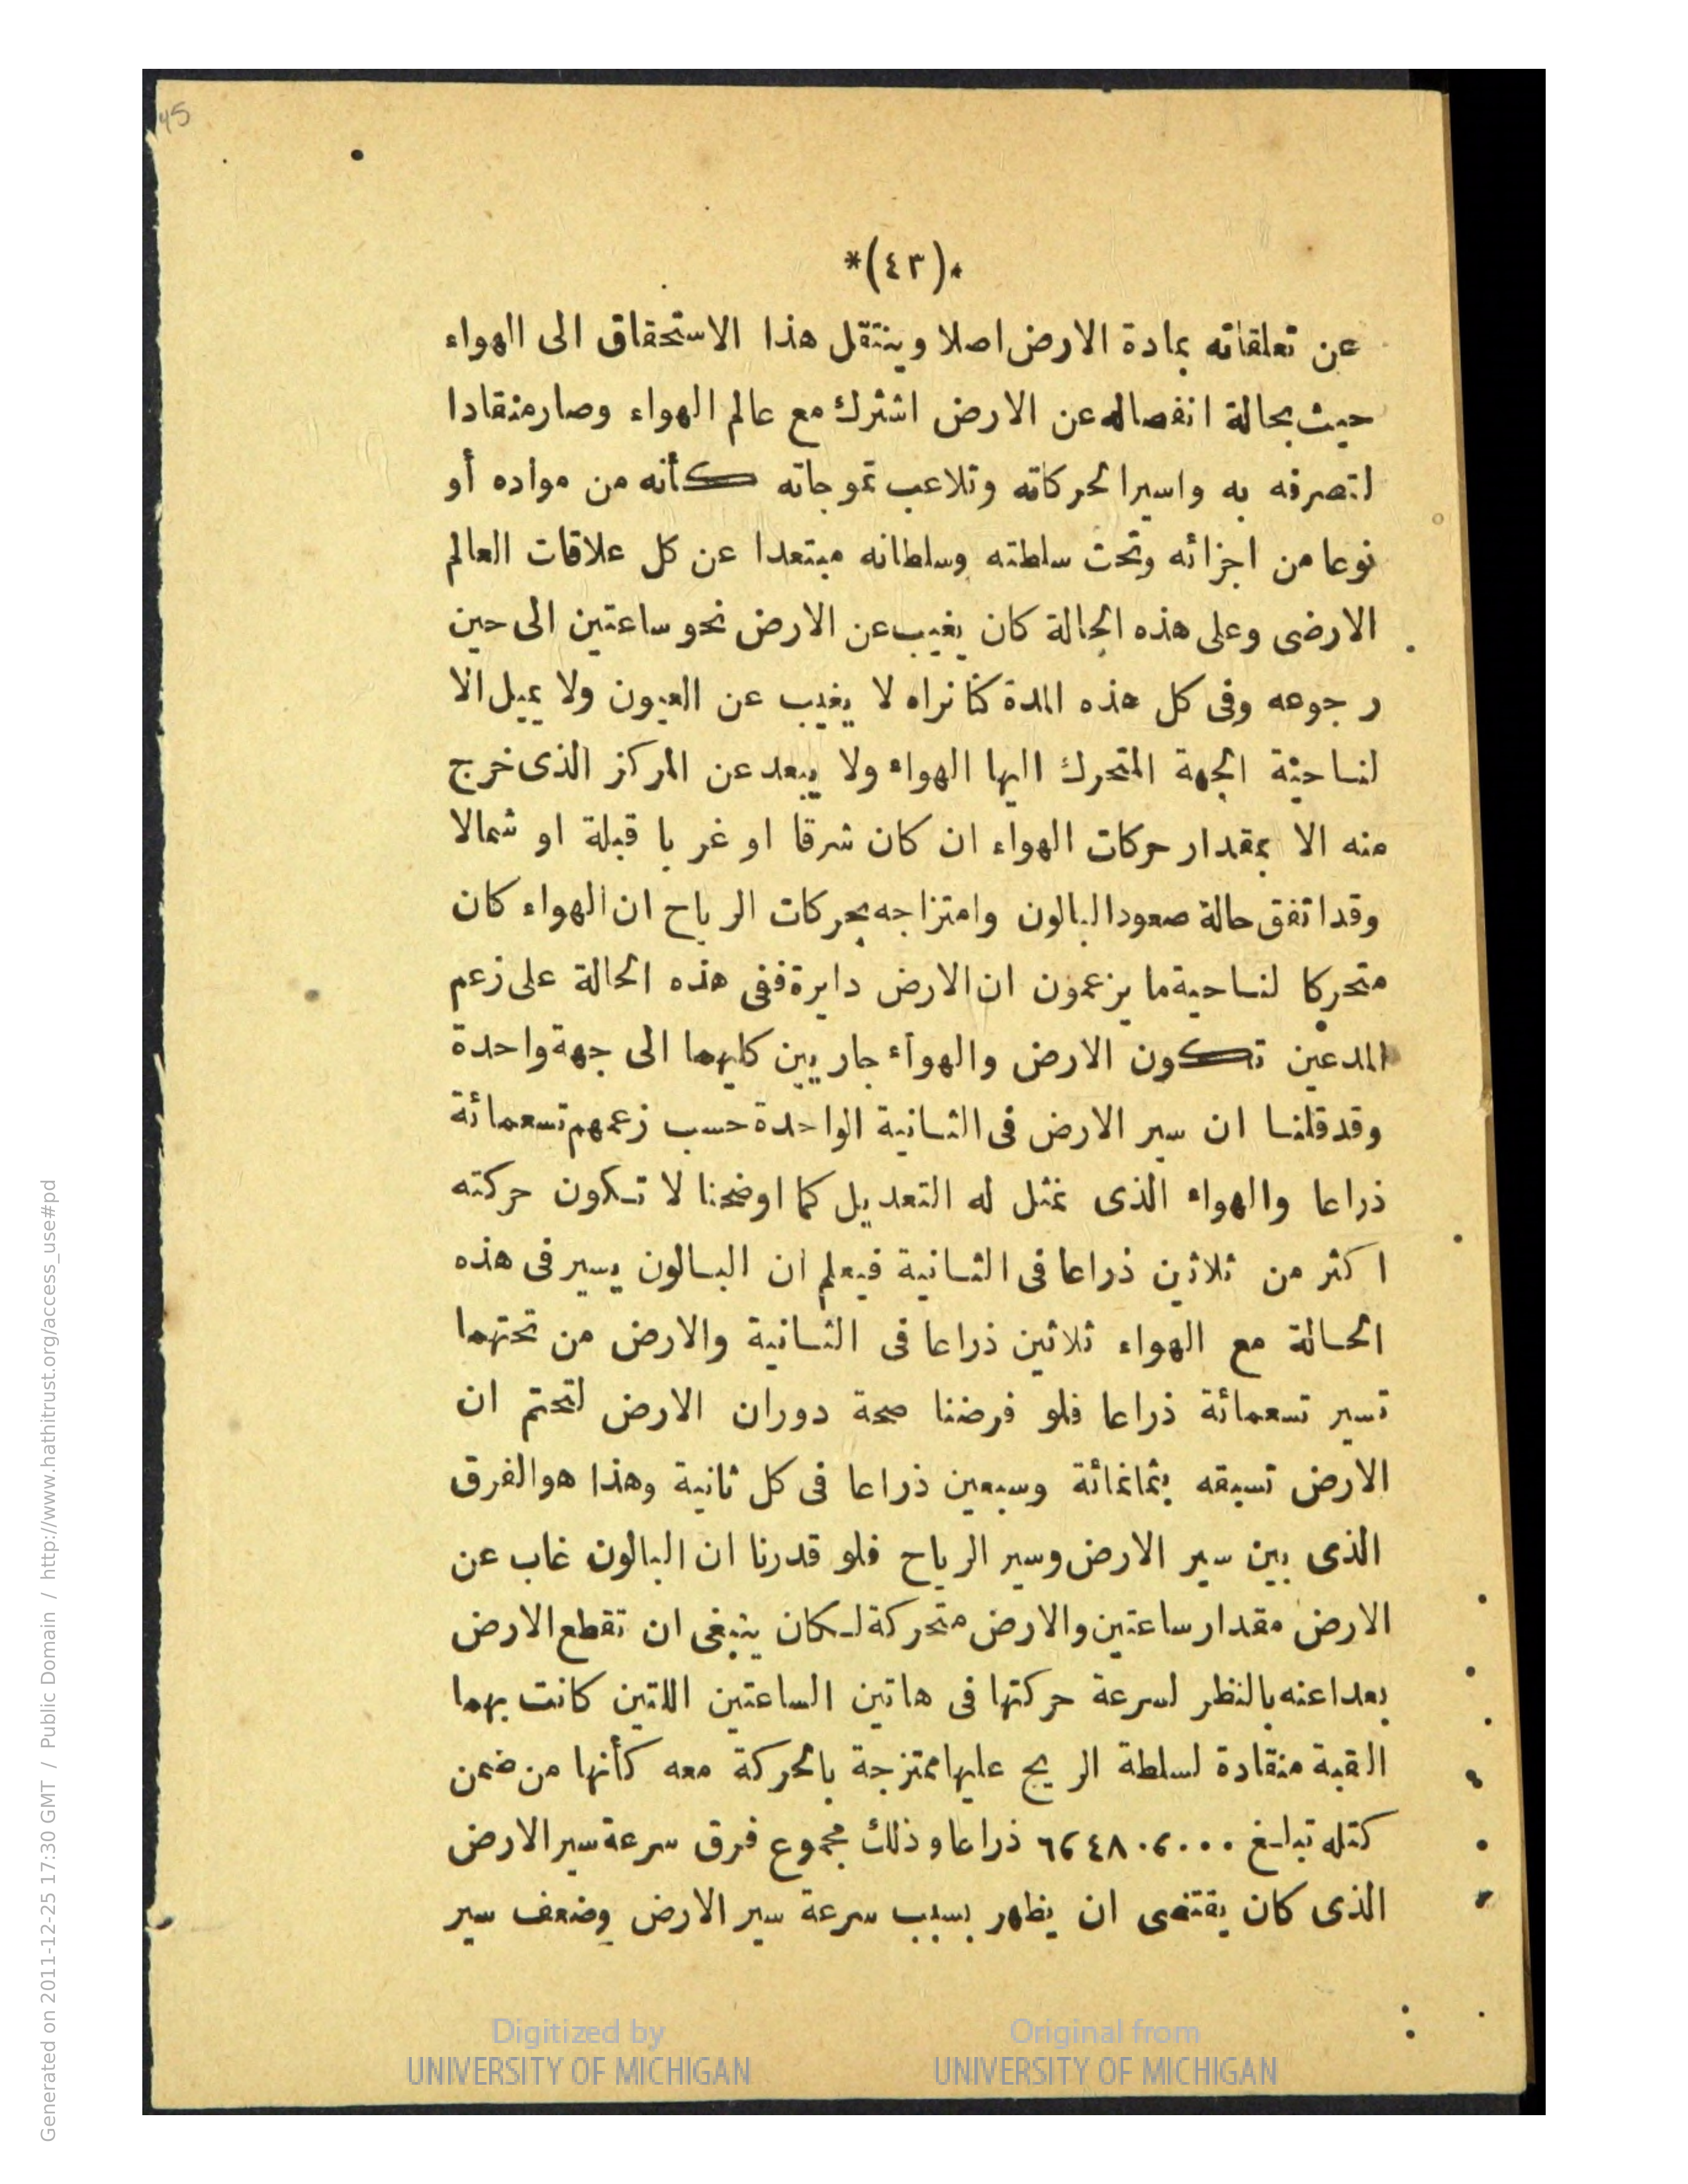 45
*(٤٣)*
عن تعلقاته بمادة الارض اصلا وينتقل هذا الاستحقاق الى الهواء
حيث بحالة انفصاله عن الارض اشترك مع عالم الهواء وصار منقادا
لتصرفه به واسيرا لحركاته وتلاعب تموجاته كأنه من مواده أو
نوعا من اجزائه وتحت سلطته وسلطانه مبتعدا عن كل علاقات العالم
الارضى وعلى هذه الحالة كان يغيب عن الارض نحو ساعتين الى حين
رجوعه وفى كل هذه المدة كنا نراه لا يغيب عن العيون ولا يميل الا
لناحية الجهة المتحرك اليها الهواء ولا يبعد عن المركز الذى خرج
منه الا بمقدار حركات الهواء ان كان شرقا او غربا قبلة او شمالا
وقد اتفق حالة صعود البالون وامتزاجه بحركات الرياح ان الهواء كان
متحركا لناحية ما يزعمون ان الارض دايرة ففى هذه الحالة على زعم
المدعين تكون الارض والهواء جاريين كليهما الى جهة واحدة
وقد قلنا ان سير الارض فى الثانية الواحدة حسب زعمهم تسعمائة
ذراعا والهواء الذى نمثل له التعديل كما اوضحنا لا تكون حركته
اكثر من ثلاثين ذراعا فى الثانية فيعلم ان البالون يسير فى هذه
الحالة مع الهواء ثلاثين ذراعا فى الثانية والارض من تحتهما
تسير تسعمائة ذراعا فلو فرضنا صحة دوران الارض لتحتم ان
الارض تسبقه بثمانمائة وسبعين ذراعا فى كل ثانية وهذا هو الفرق
الذى بين سير الارض وسير الرياح فلو قدرنا ان البالون غاب عن
الارض مقدار ساعتين والارض متحركة لكان ينبغى ان تقطع الارض
بعدا عنه بالنظر لسرعة حركتها فى هاتين الساعتين اللتين كانت بهما
القبة منقادة لسلطة الريح عليها ممتزجة بالحركة معه كأنها من ضمن
كتله تبلغ ٦٢٤٨٠٢٠٠٠ ذراعا وذلك مجموع فرق سرعة سير الارض
الذى كان يقتضى ان يظهر بسبب سرعة سير الارض وضعف سير
Digitized by UNIVERSITY OF MICHIGAN
Original from UNIVERSITY OF MICHIGAN
Generated on 2011-12-25 17:30 GMT / Public Domain / http://www.hathitrust.org/access_use#pd